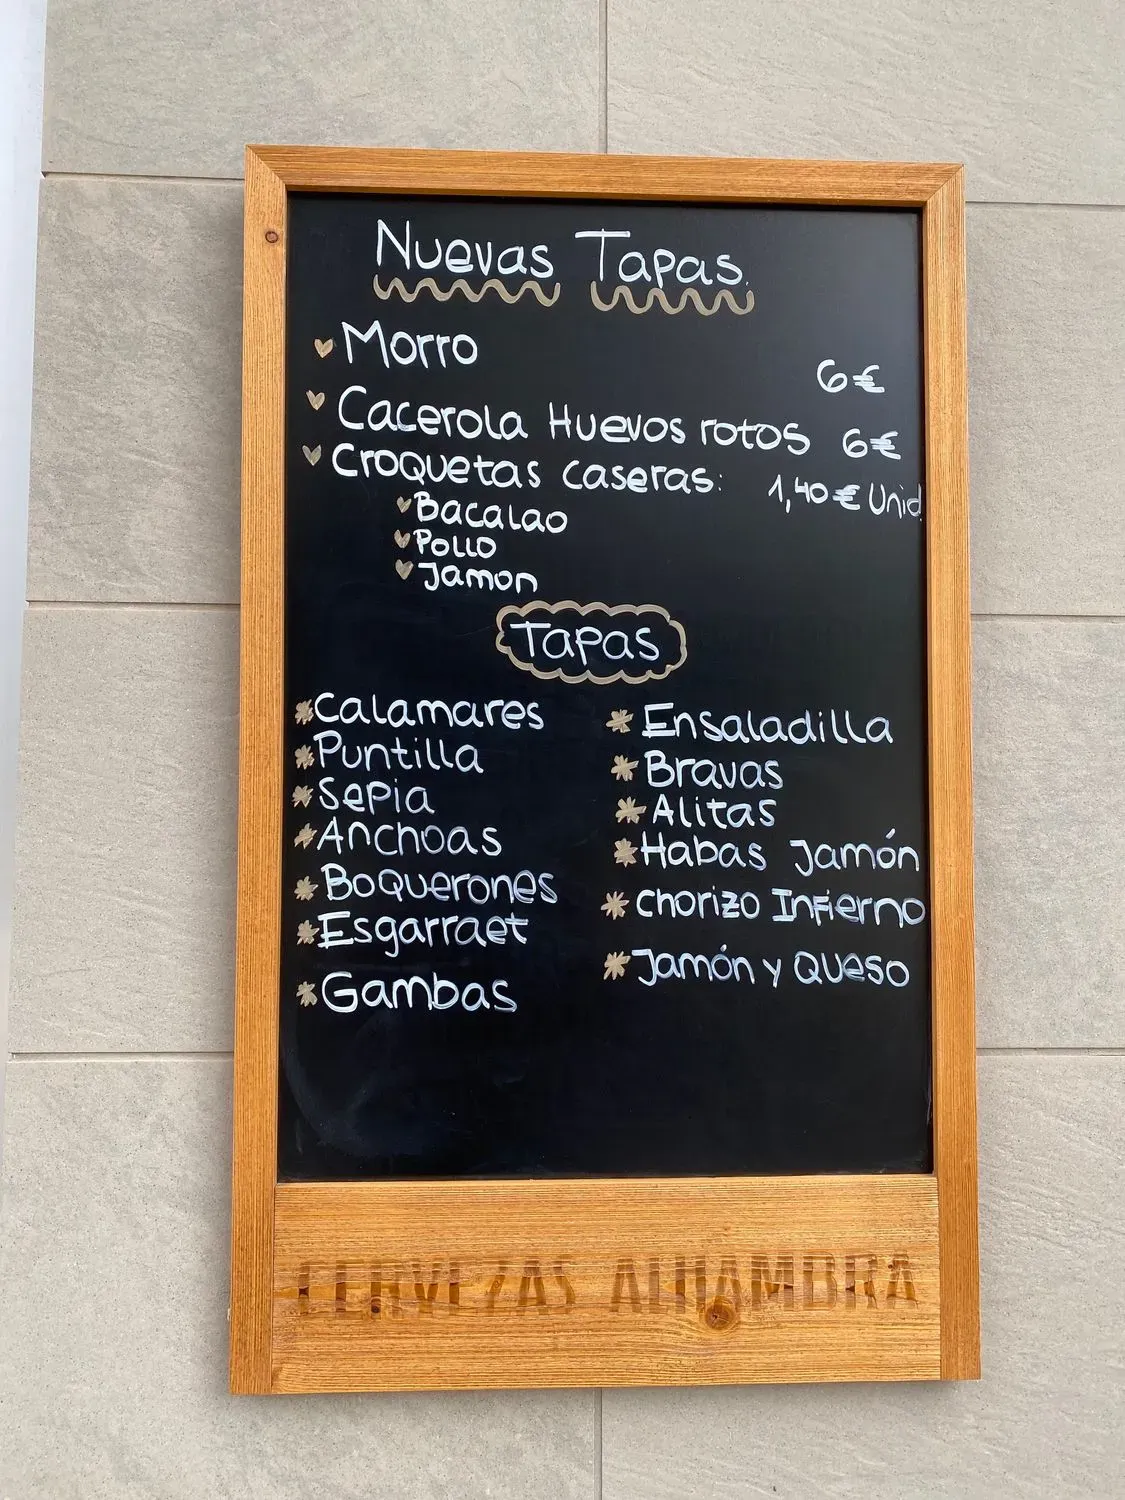 Nuevas Tapas.
Morro 6€
Cacerola Huevos rotos 6€
Croquetas caseras: 1,40€ Unid.
Bacalao
Pollo
Jamon
Tapas
Calamares
Puntilla
Sepia
Anchoas
Boquerones
Esgarraet
Gambas
Ensaladilla
Bravas
Alitas
Habas Jamón
Chorizo Infierno
Jamón y Queso
CERVEZAS ALHAMBRA